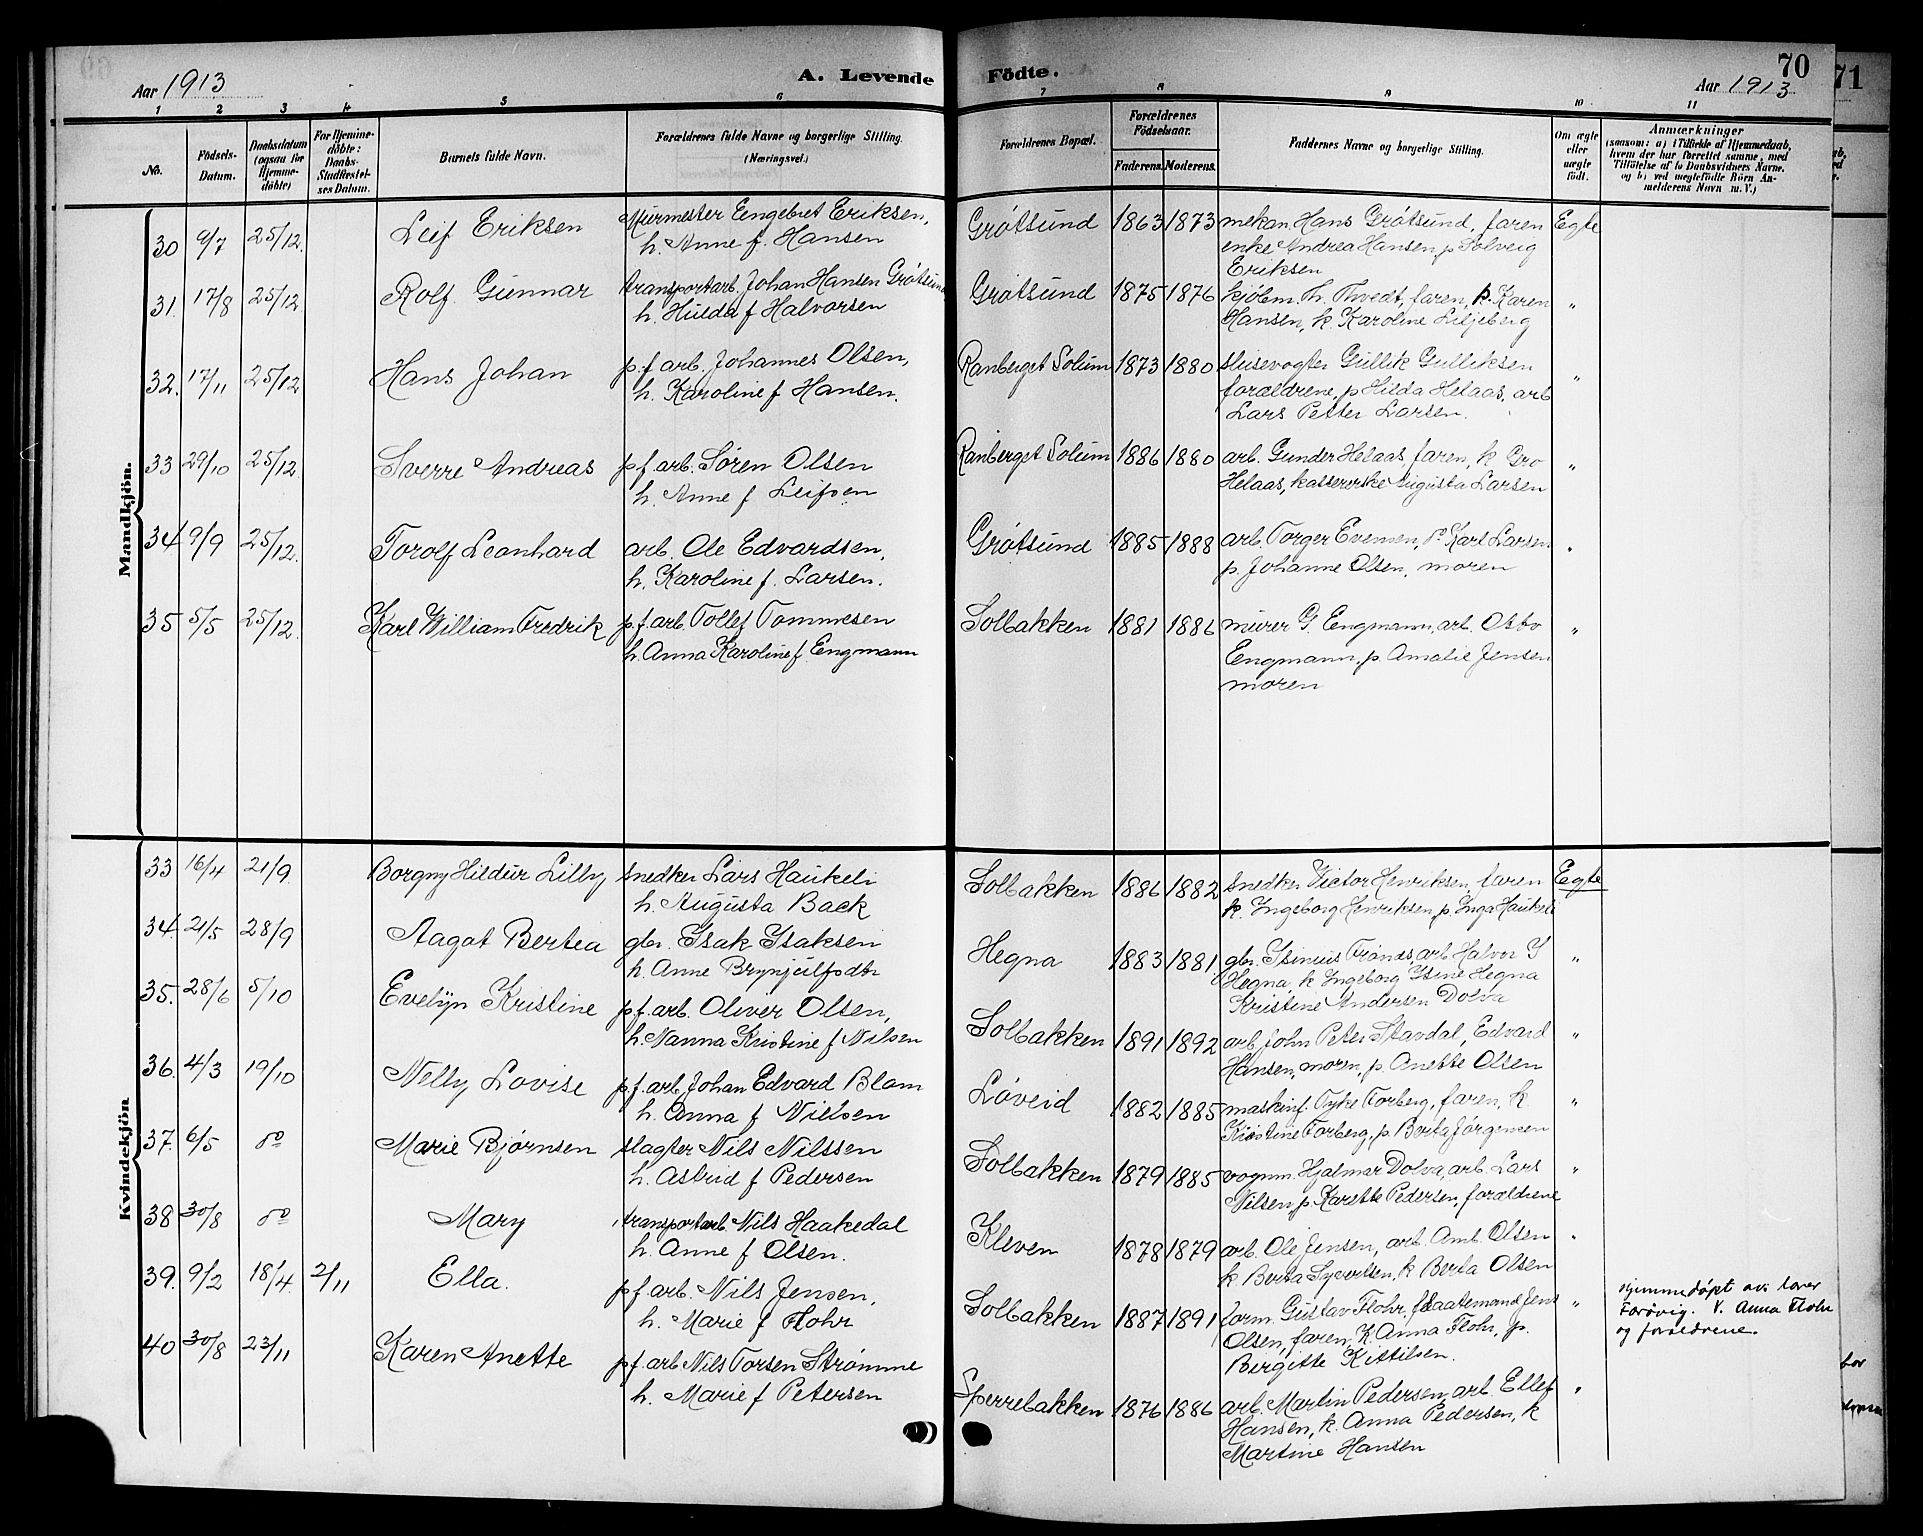 Aar 1913 A. Levende Födte. Aar 1913 70
71
1 2 3 4 5 6 7 8 9 10 11
No.
Födsels-Datum.
Daabsdatum (ogsaa for Hjemme-döbte)
For Hjemme-döbte: Daabs-Stadfæstel-ses Datum.
Barnets fulde Navn.
Forældrenes fulde Navne og borgerlige Stilling. (Næringsvei.)
Forældrenes Bopæl.
Forældrenes Födselsaar.
Faderens. Moderens.
Faddernes Navne og borgerlige Stilling.
Om ægte eller uægte födt.
Anmærkninger
(saasom: a) i Tilfælde af Hjemmedaab,
hvem der har forrettet samme, med
Tilföielse af to Daabsvidners Navne.
og b) ved uægtefödte Börn An-
melderens Navn m. V.)
Mandkjön.
30 9/7 25/12 Leif Eriksen Murmester Engebret Eriksen, Grøtsund 1863 1873 mekan. Hans Grøtsund, faren Egte
h. Anne f. Hansen enke Andrea Hansen, p Solveig
Eriksen
31. 17/8 25/12 Rolf Gunnar transportarb. Johan Hansen Grøtsund Grøtsund 1875 1876 kjøbm. Th. Thvedt, faren, k. Karen "
h. Hulda f Halvorsen Hansen, k. Karoline Liljeberg
32. 17/11 25/12 Hans Johan p.f. arb. Johannes Olsen, Ranberget Solum 1873 1880 slusevogter Gullik Gulliksen "
h. Karoline f Hansen. forældrene, p Hilda Helaas, arb
Lars Petter Larsen.
33 29/10 25/12. Sverre Andreas p f arb. Søren Olsen Ranberget Solum 1886 1880 arb. Gunder Helaas, faren, k Gro "
h. Anne f Leifsen Helaas, kassererske Augusta Larsen
34 9/9 25/12. Torolf Leonhard arb. Ole Edvardsen, Grøtsund 1885 1888 arb. Torger Evensen, Karl Larsen "
h. Karoline f. Larsen. p. Johanne Olsen, moren
35 5/5 25/12. Karl William Fredrik p.f. arb. Tollef Tommesen Solbakken 1881 1886 murer G. Engmann, arb. Otto "
h. Anna Karoline f. Engmann Engmann, p. Amalie Jensen
moren
Kvindekjön
33 16/4 21/9 Borgny Hildur Lilly snedker Lars Haukeli Solbakken 1886 1882 snedker Victor Henriksen, faren Egte
h. Augusta Back k. Ingeborg Henriksen, p. Inga Haukeli
34. 21/5 28/9 Aagot Bertea gbr. Isak Isaksen Hegna 1883 1881 gbr. Trønes, arb Halvor I "
h. Anne Brynjulfsdtr Hegna, k Ingeborg Hegna
Kristine Andersen Dolva
35. 28/6 5/10 Evelyn Kristine p f. arb. Oliver Olsen, Solbakken 1891 1892 arb. John Peter Stavdal, Edvard "
h. Nanna Kristine f Nilsen Hansen, moren, p Anette Olsen
36. 4/3 19/10 Nelly Lovise p f. arb. Johan Edvard Blom Løveid 1882 1885 maskinf. Torberg, faren, k "
h. Anna f Nielsen Kristine Torberg, p. Berta Jørgensen
37. 6/5 do Marie Bjørnsen slagter Nils Nilssen Solbakken 1879 1885 vognm. Hjalmar Dolva, arb. Lars "
h. Astrid f Pedersen Nilsen p. Karette Pedersen, forældrene
38 30/8 do Mary transportarb Nils Haakedal Kleven 1878 1879 arb. Ole Jensen, arb. Amb. Olsen "
h. Anne f Olsen. k Berta Syvertsen, k Berta Olsen
39. 9/2 18/4. 2/11 Ella. p f arb. Nils Jensen, Solbakken 1887 1891 form. Gustav Flohr, flaatemand Jens "
h. Marie f Flohr Olsen, faren, k. Anna Flohr, p.
Bergitte Kittilsen.
Hjemmedøpt av: lærer
Farøvig. V. Anna Flohr
og forældrene.
40 30/8 23/11 Karen Anette p f arb Nils Torsen Strømme Sperrebakken 1876 1886 arb. Martin Pedersen, arb. Ellef "
h. Marie f Petersen Hansen, k. Anna Pedersen, k
Martine Hansen